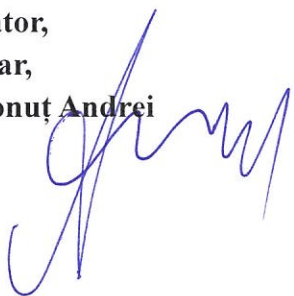 ator,
ar,
onuț Andrei